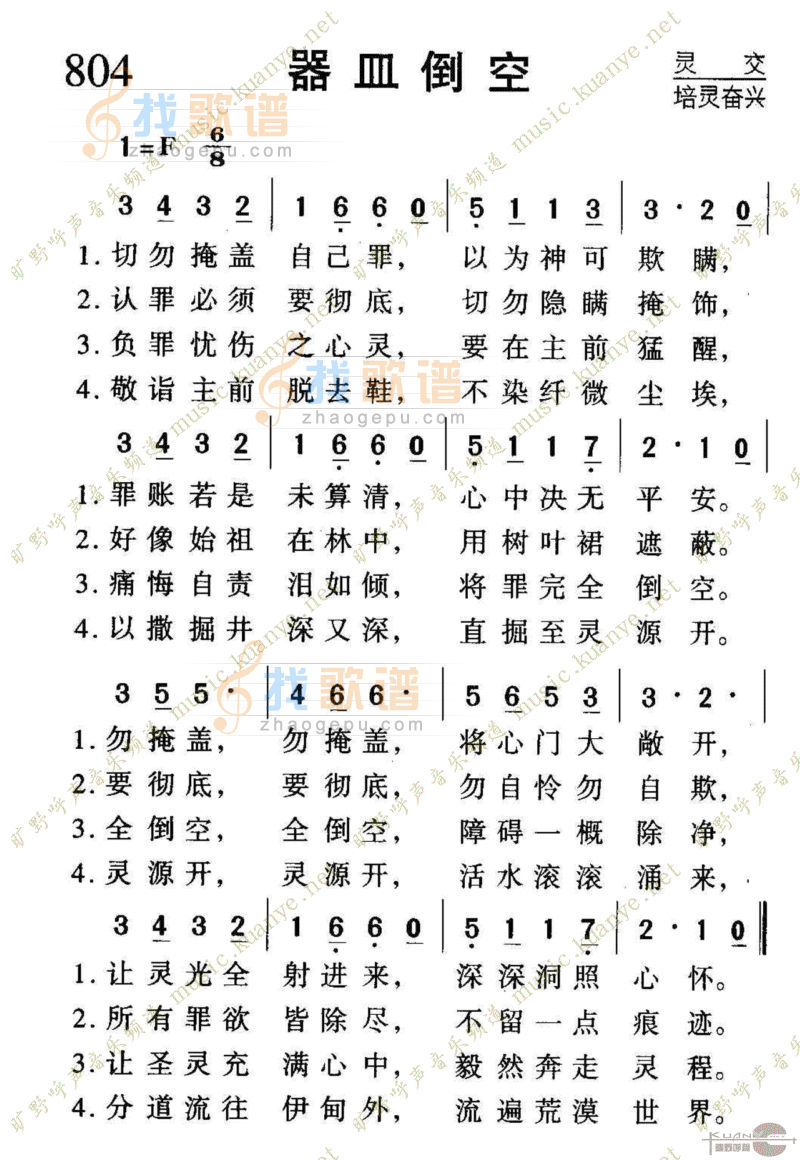 804 器皿倒空 灵 交
培灵奋兴
1=F 6/8
3 4 3 2 | 1 6 6 0 | 5 1 1 3 | 3 · 2 0
1.切勿掩盖 自己罪, 以为神可 欺瞒,
2.认罪必须 要彻底, 切勿隐瞒 掩饰,
3.负罪忧伤 之心灵, 要在主前 猛醒,
4.敬诣主前 脱去鞋, 不染纤微 尘埃,
3 4 3 2 | 1 6 6 0 | 5 1 1 7 | 2 · 1 0
1.罪账若是 未算清, 心中决无 平安。
2.好像始祖 在林中, 用树叶裙 遮蔽。
3.痛悔自责 泪如倾, 将罪完全 倒空。
4.以撒掘井 深又深, 直掘至灵 源开。
3 5 5 · | 4 6 6 · | 5 6 5 3 | 3 · 2 ·
1.勿掩盖, 勿掩盖, 将心门大 敞开,
2.要彻底, 要彻底, 勿自怜勿 自欺,
3.全倒空, 全倒空, 障碍一概 除净,
4.灵源开, 灵源开, 活水滚滚 涌来,
3 4 3 2 | 1 6 6 0 | 5 1 1 7 | 2 · 1 0
1.让灵光全 射进来, 深深洞照 心怀。
2.所有罪欲 皆除尽, 不留一点 痕迹。
3.让圣灵充 满心中, 毅然奔走 灵程。
4.分道流往 伊甸外, 流遍荒漠 世界。
找歌谱
zhaogepu.com
找歌谱
zhaogepu.com
找歌谱
zhaogepu.com
旷野呼声音乐频道 music.kuanye.net